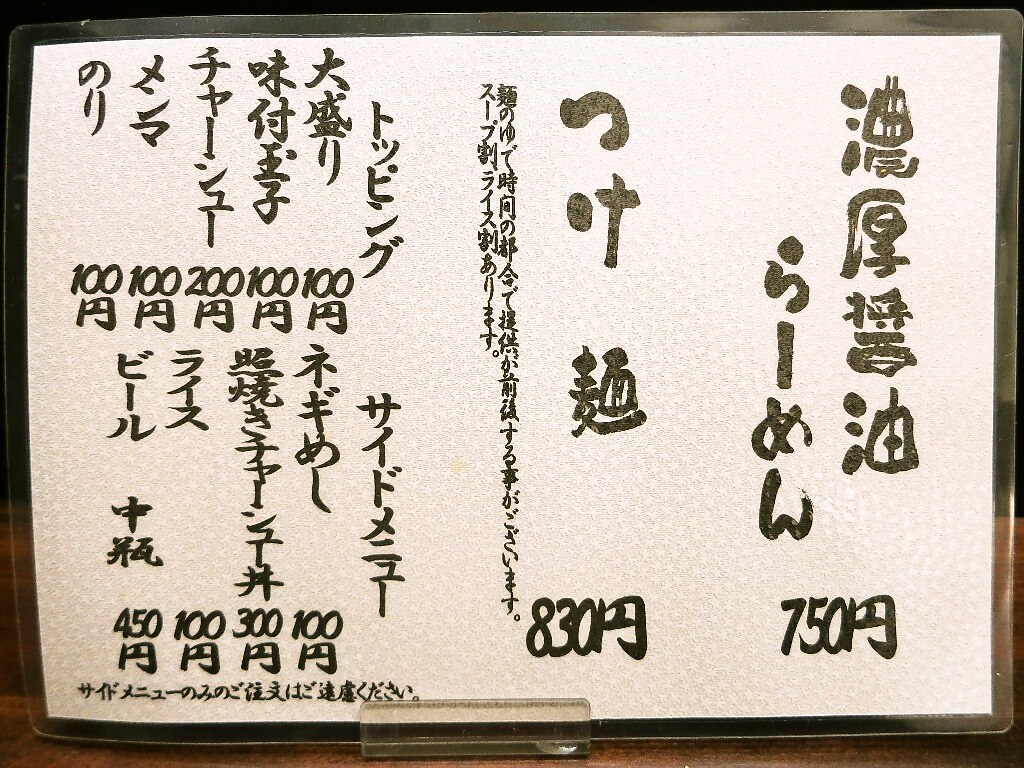 濃厚醤油
らーめん
750円
つけ麺
830円
麺のゆで時間の都合で提供が前後する事がございます。
スープ割ライス割あります。
トッピング
大盛り 100円
味付玉子 100円
チャーシュー 200円
メンマ 100円
のり 100円
サイドメニュー
ネギめし 100円
照焼きチャーシュー丼 300円
ライス 100円
ビール 中瓶 450円
サイドメニューのみのご注文はご遠慮ください。